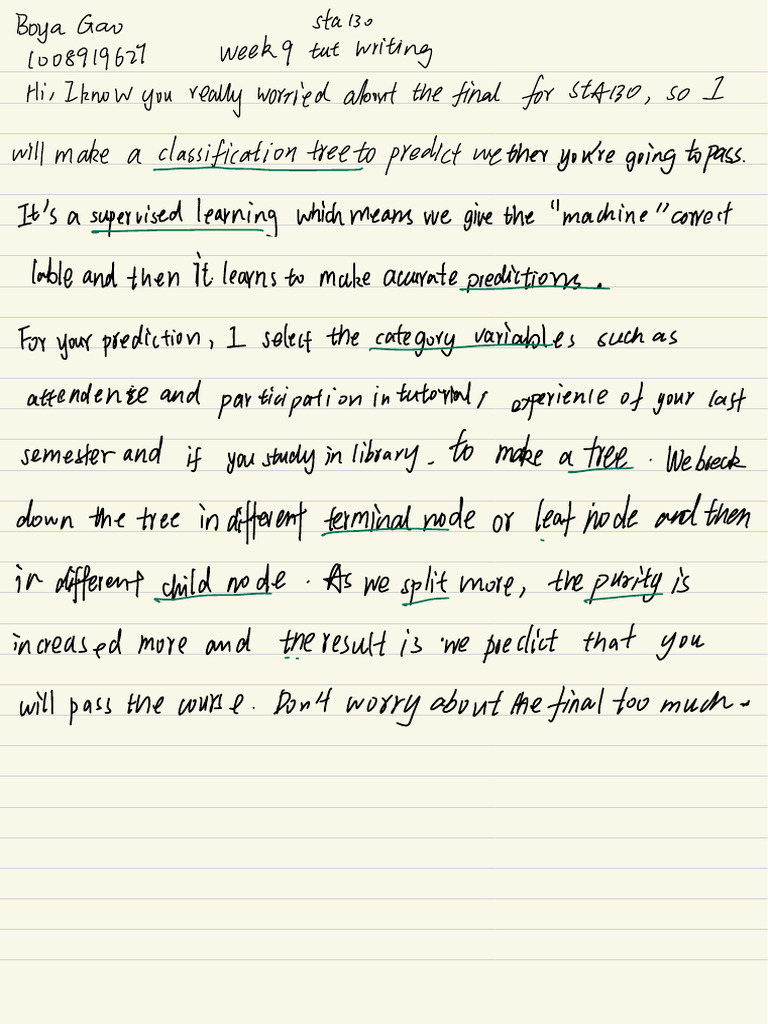 Boya Gao sta130
1008919627 week 9 tut writing
Hi, I know you really worried about the final for STA130, so I
will make a classification tree to predict wether you're going to pass.
It's a supervised learning which means we give the "machine" correct
lable and then it learns to make accurate predictions.
For your prediction, I select the category variables such as
attendence and participation in tutorial, experience of your last
semester and if you study in library. to make a tree. We break
down the tree in different terminal node or leaf node and then
in different child node. As we split more, the purity is
increased more and the result is we predict that you
will pass the course. Don't worry about the final too much.